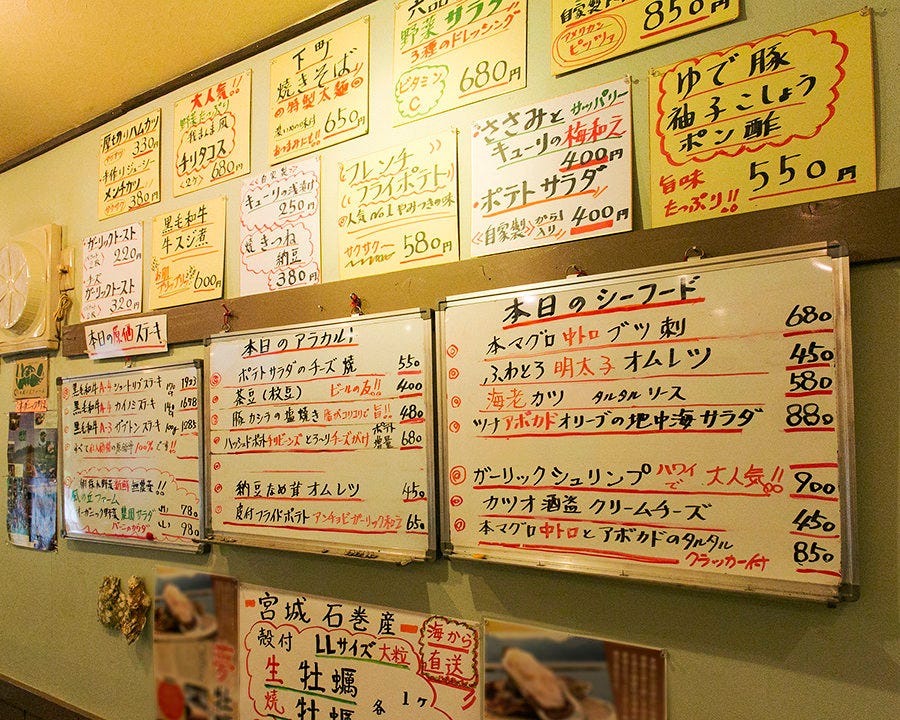 厚切りハムカツ
330円
手作りジューシー
メンチカツ
380円
大人気!!
野菜たっぷり
チリタコス
680円
下町
焼きそば
の特製太麺の
650円
野菜サラダ
3種のドレッシング
ビタミン
C
680円
自家製
850円
アメリカン
ピッツァ
ゆで豚
柚子こしょう
ポン酢
旨味
たっぷり!!
550円
ささみと サッパリー
キューリの梅和え
400円
ポテトサラダ
《自家製》から1入り
400円
フレンチ
フライポテト
の人気no1やみつきの味
サクサクー
580円
自家製
キューリの浅漬け
250円
焼きつね
納豆
380円
黒毛和牛
牛スジ煮
600円
ガーリックトースト
220円
チーズ
ガーリックトースト
320円
本日の原価ステキ
黒毛和牛A-4 ショートリブステーキ
黒毛和牛A-4 カイノミステーキ
黒毛和牛A-3
ファーム
オーガニック野菜 農園サラダ
780
バーニャカウダ
980
本日のアラカルト
ポテトサラダのチーズ焼 550
茶豆(枝豆) ビールの友!! 400
豚カシラの塩焼き 旨!! 480
ハッシュドポテトチリビーンズとろ〜りチーズがけ 680
納豆なめ茸オムレツ 450
皮付フライドポテト アンチョビガーリック和え 650
本日のシーフード
本マグロ中トロブツ刺 680
ふわとろ明太子オムレツ 450
海老カツ タルタルソース 580
ツナアボカドオリーブの地中海サラダ 880
ガーリックシュリンプ ハワイで大人気!! 900
カツオ酒盗クリームチーズ 450
本マグロ中トロとアボカドのタルタル
クラッカー付 850
宮城 石巻産
海から
直送
殻付 LLサイズ 大粒
生 牡蠣
焼 牡蠣 各1ケ